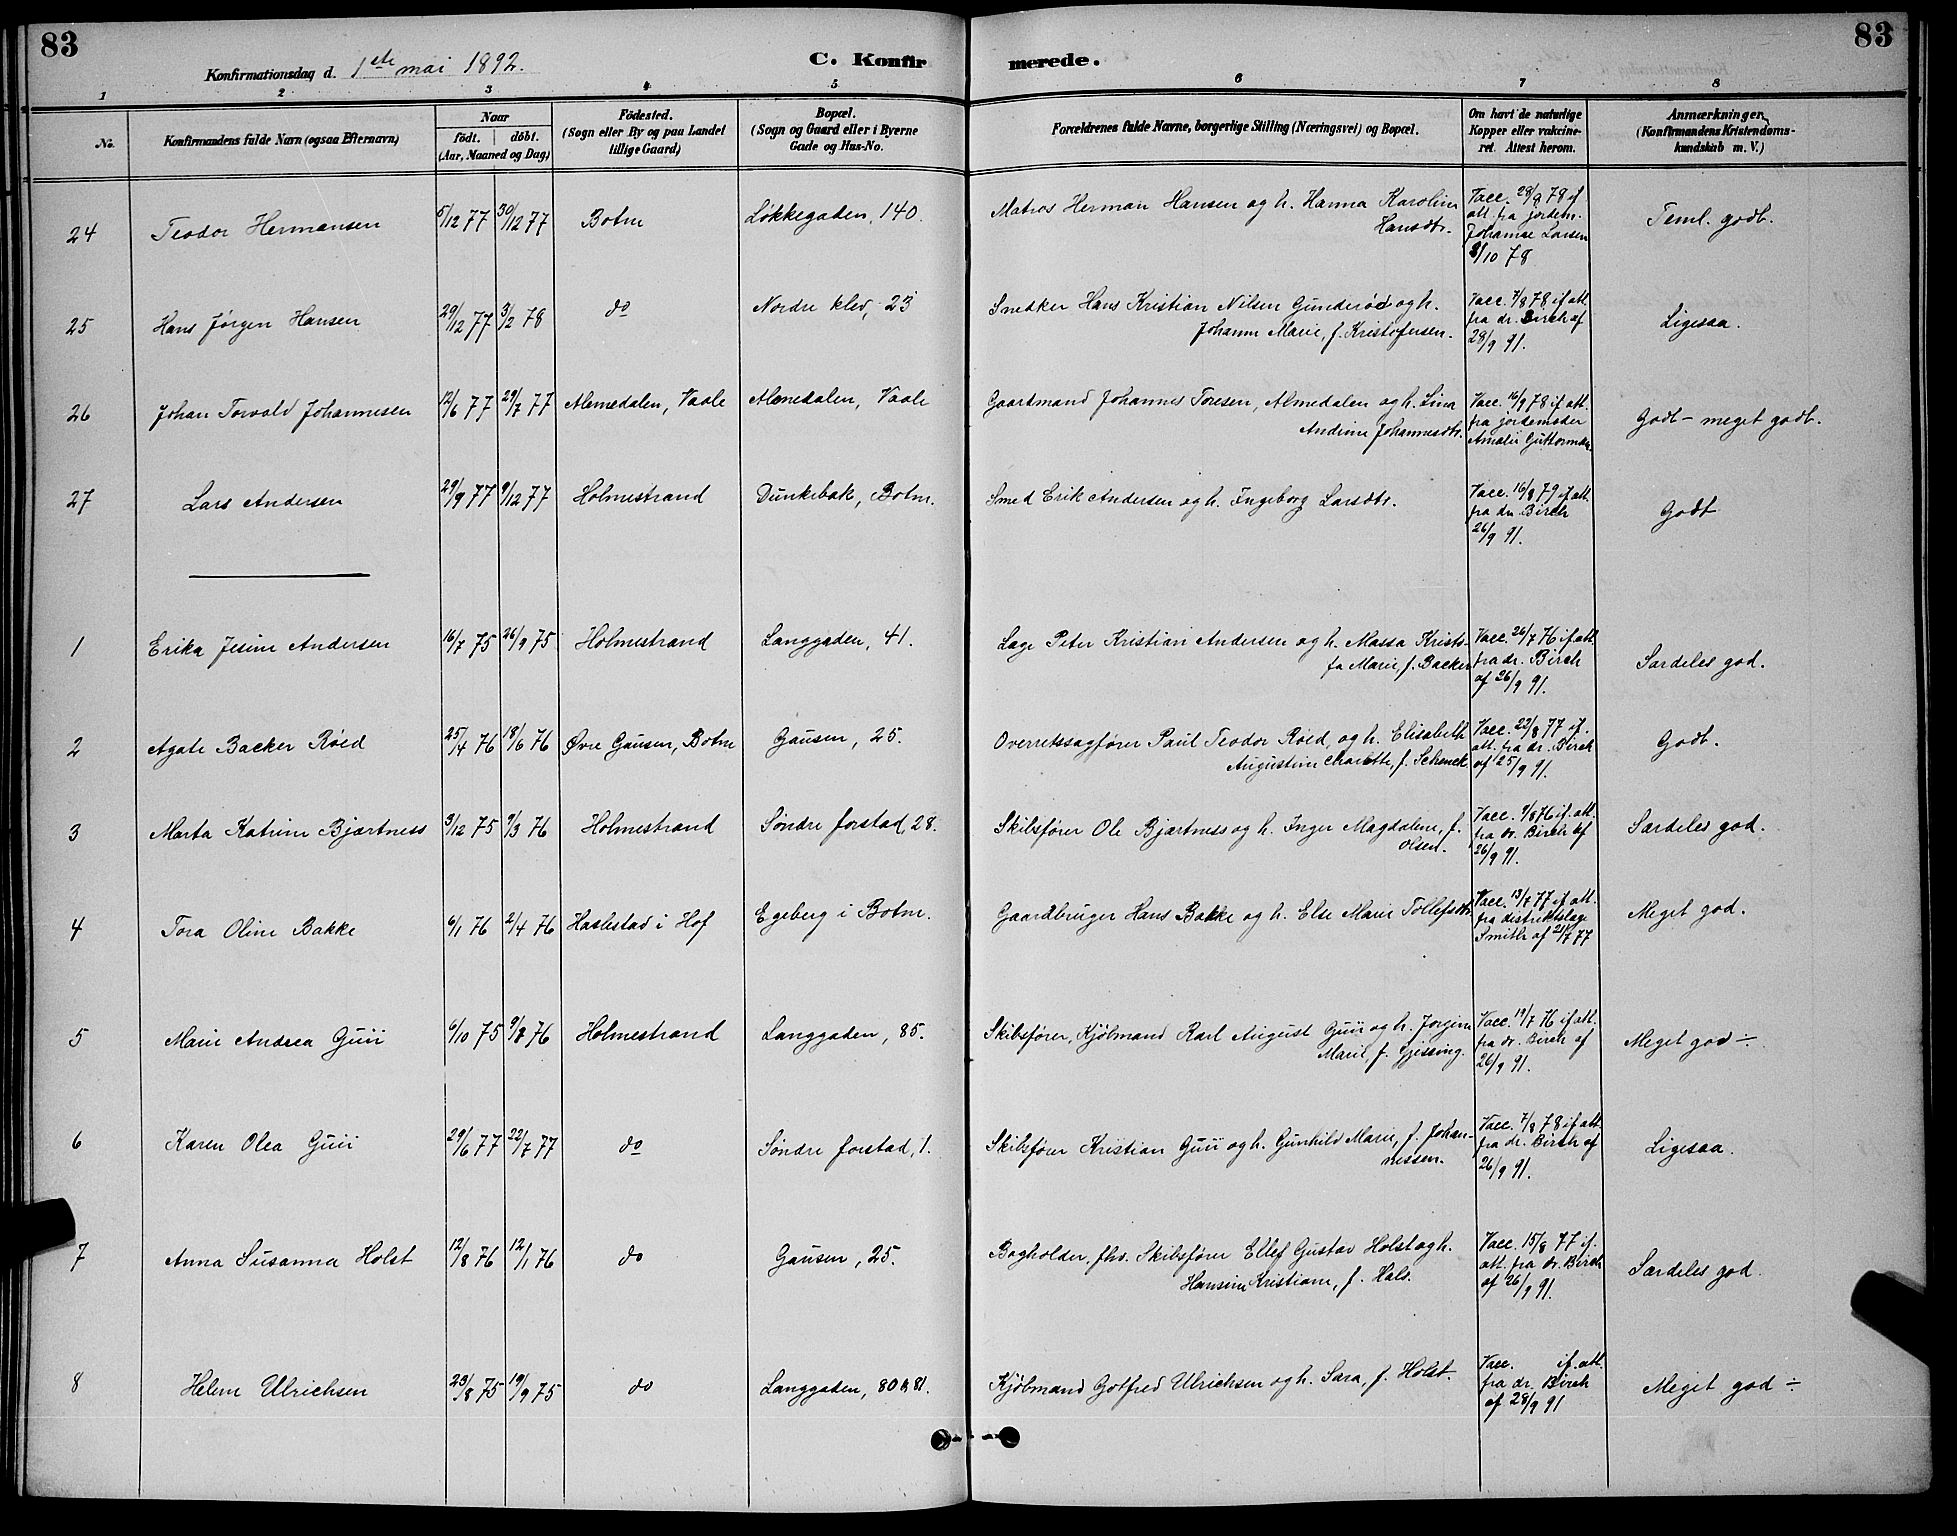 83
83
Konfirmationsdag d. 1ste mai 1892.
C. Konfirmerede.
1 2 3 4 5 6 7 8
No.
Konfirmandens fulde Navn (ogsaa Efternavn)
Naar
födt. döbt.
(Aar, Maaned og Dag)
Födested.
(Sogn eller By og paa Landet
tillige Gaard)
Bopæl.
(Sogn og Gaard eller i Byerne
Gade og Hus-No.
Forældrenes fulde Navne, borgerlige Stilling (Næringsvei) og Bopæl.
Om havt de naturlige
Kopper eller vakcine-
ret. Attest herom.
Anmærkninger
(Konfirmandens Kristendoms-
kundskab m. V.)
24 Teodor Hermansen 5/12 77 30/12 77 Botne Løkkegaden, 140.
Matros Herman Hansen og h. Hanna Karoline
Hansdtr.
Vacc. 28/8 78 if
att. fra jordem.
Johanne Larsen
2/10 78
Teml. godt.
25 Hans Jørgen Hansen 29/12 77 3/2 78 do Nordre klev, 23
Snedker Hans Kristian Nilsen Gunderød og h.
Johanne Marie, f. Kristofersen.
Vacc. 7/8 78 if att.
fra dr. Birch af
28/9 91.
Ligesaa.
26 Johan Torvald Johannesen 12/6 77 29/7 77 Almedalen, Vaale Almedalen, Vaale
Gaardmand Johannes Toresen, Almedalen og h. Lina
Andrine Johannesdtr.
Vacc. 16/9 78 if att.
fra jordemoder
Amalie Guttormsen.
Godt - meget godt.
27 Lars Andersen 29/9 77 9/12 77 Holmestrand Dunkebak, Botne.
Smed Erik Andersen og h. Ingeborg Larsdtr.
Vacc. 16/8 79 if att.
fra dr. Birch
26/9 91.
Godt
1 Erika Jesine Andersen 16/7 75 26/9 75 Holmestrand Langgaden, 41.
Læge Peter Kristian Andersen og h. Massa Kristo-
fa Marie, f. Backer
Vacc. 26/7 76 if att.
fra dr. Birch
af 26/9 91.
Særdeles god.
2 Agate Backer Røed 25/4 76 18/6 76 Øvre Gausen, Botne Gausen, 25.
Overretssagfører Paul Teodor Røed, og h. Elisabeth
Augustine Charlotte, f. Schenck.
Vacc. 22/8 77 if.
att. fra dr. Birch
af 25/9 91.
Godt.
3 Marta Katrine Bjærtness 3/12 75 9/3 76 Holmestrand Søndre forstad, 28.
Skibsfører Ole Bjærtness og h. Inger Magdalene, f.
Olsen.
Vacc. 9/8 76 if. att.
fra dr. Birch af
26/9 91.
Særdeles god.
4 Tora Oline Bakke 6/1 76 2/4 76 Haslestad i Hof Egeberg i Botne.
Gaardbruger Hans Bakke og h. Else Marie Tollefsdtr.
Vacc. 13/7 77 if att.
fra distriktslæge
Smith af 21/7 77
Meget god.
5 Marie Andrea Guii 6/10 75 9/8 76 Holmestrand Langgaden, 85.
Skibsfører, Kjøbmand Karl August Guii og h. Jorgine
Marie, f. Gjessing.
Vacc. 19/7 76 if att.
fra dr. Birch af
26/9 91.
Meget god ÷
6 Karen Olea Guii 29/6 77 22/7 77 do Søndre forstad, 1.
Skibsfører Kristian Guii og h. Gunhild Marie, f. Johan-
nessen.
Vacc. 7/8 78 if att.
fra dr. Birch af
26/9 91.
Ligesaa.
7 Anna Susanna Holst 12/8 76 12/1 76 do Gausen, 25.
Bogholder, fhv. Skibsfører Ellef Gustav Holst og h.
Hansine Kristiane, f. Hals.
Vacc. 15/8 77 if.
att. fra dr. Birch
af 26/9 91.
Særdeles god.
8 Helene Ulrichsen 23/8 75 19/9 75 do Langgaden, 80 & 81.
Kjøbmand Gotfred Ulrichsen og h. Sara, f. Holst.
Vacc. if. att.
fra dr. Birch
af 28/9 91
Meget god ÷